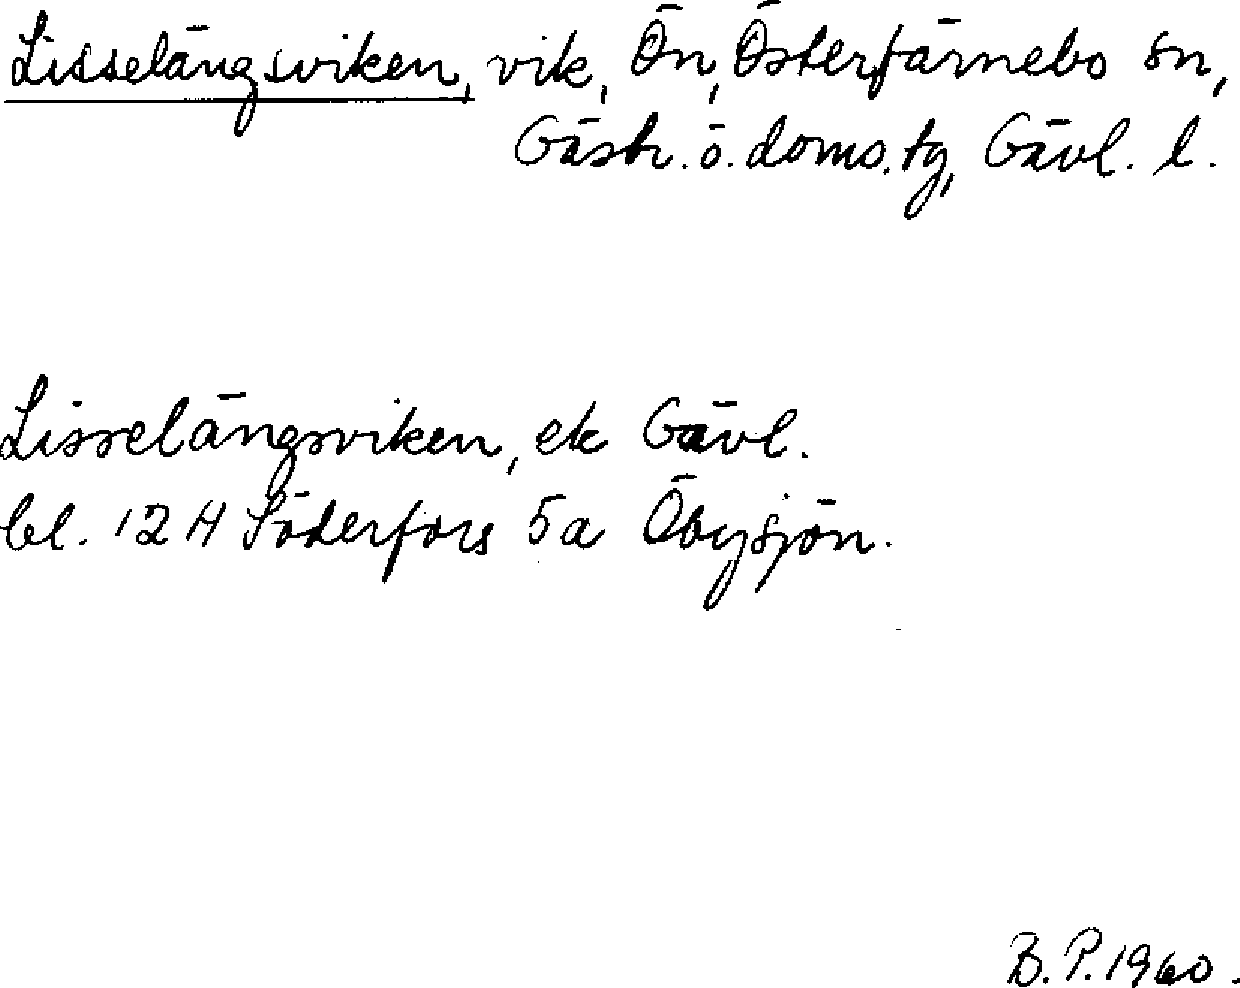 Lisselängsviken, vik, Ön, Österfärnebo sn,
Gästr. ö. doms. tg, Gävl. l.
Lisselängsviken, ek Gävl.
bl. 12 H Söderfors 5a Öbysjön.
B. P. 1960.